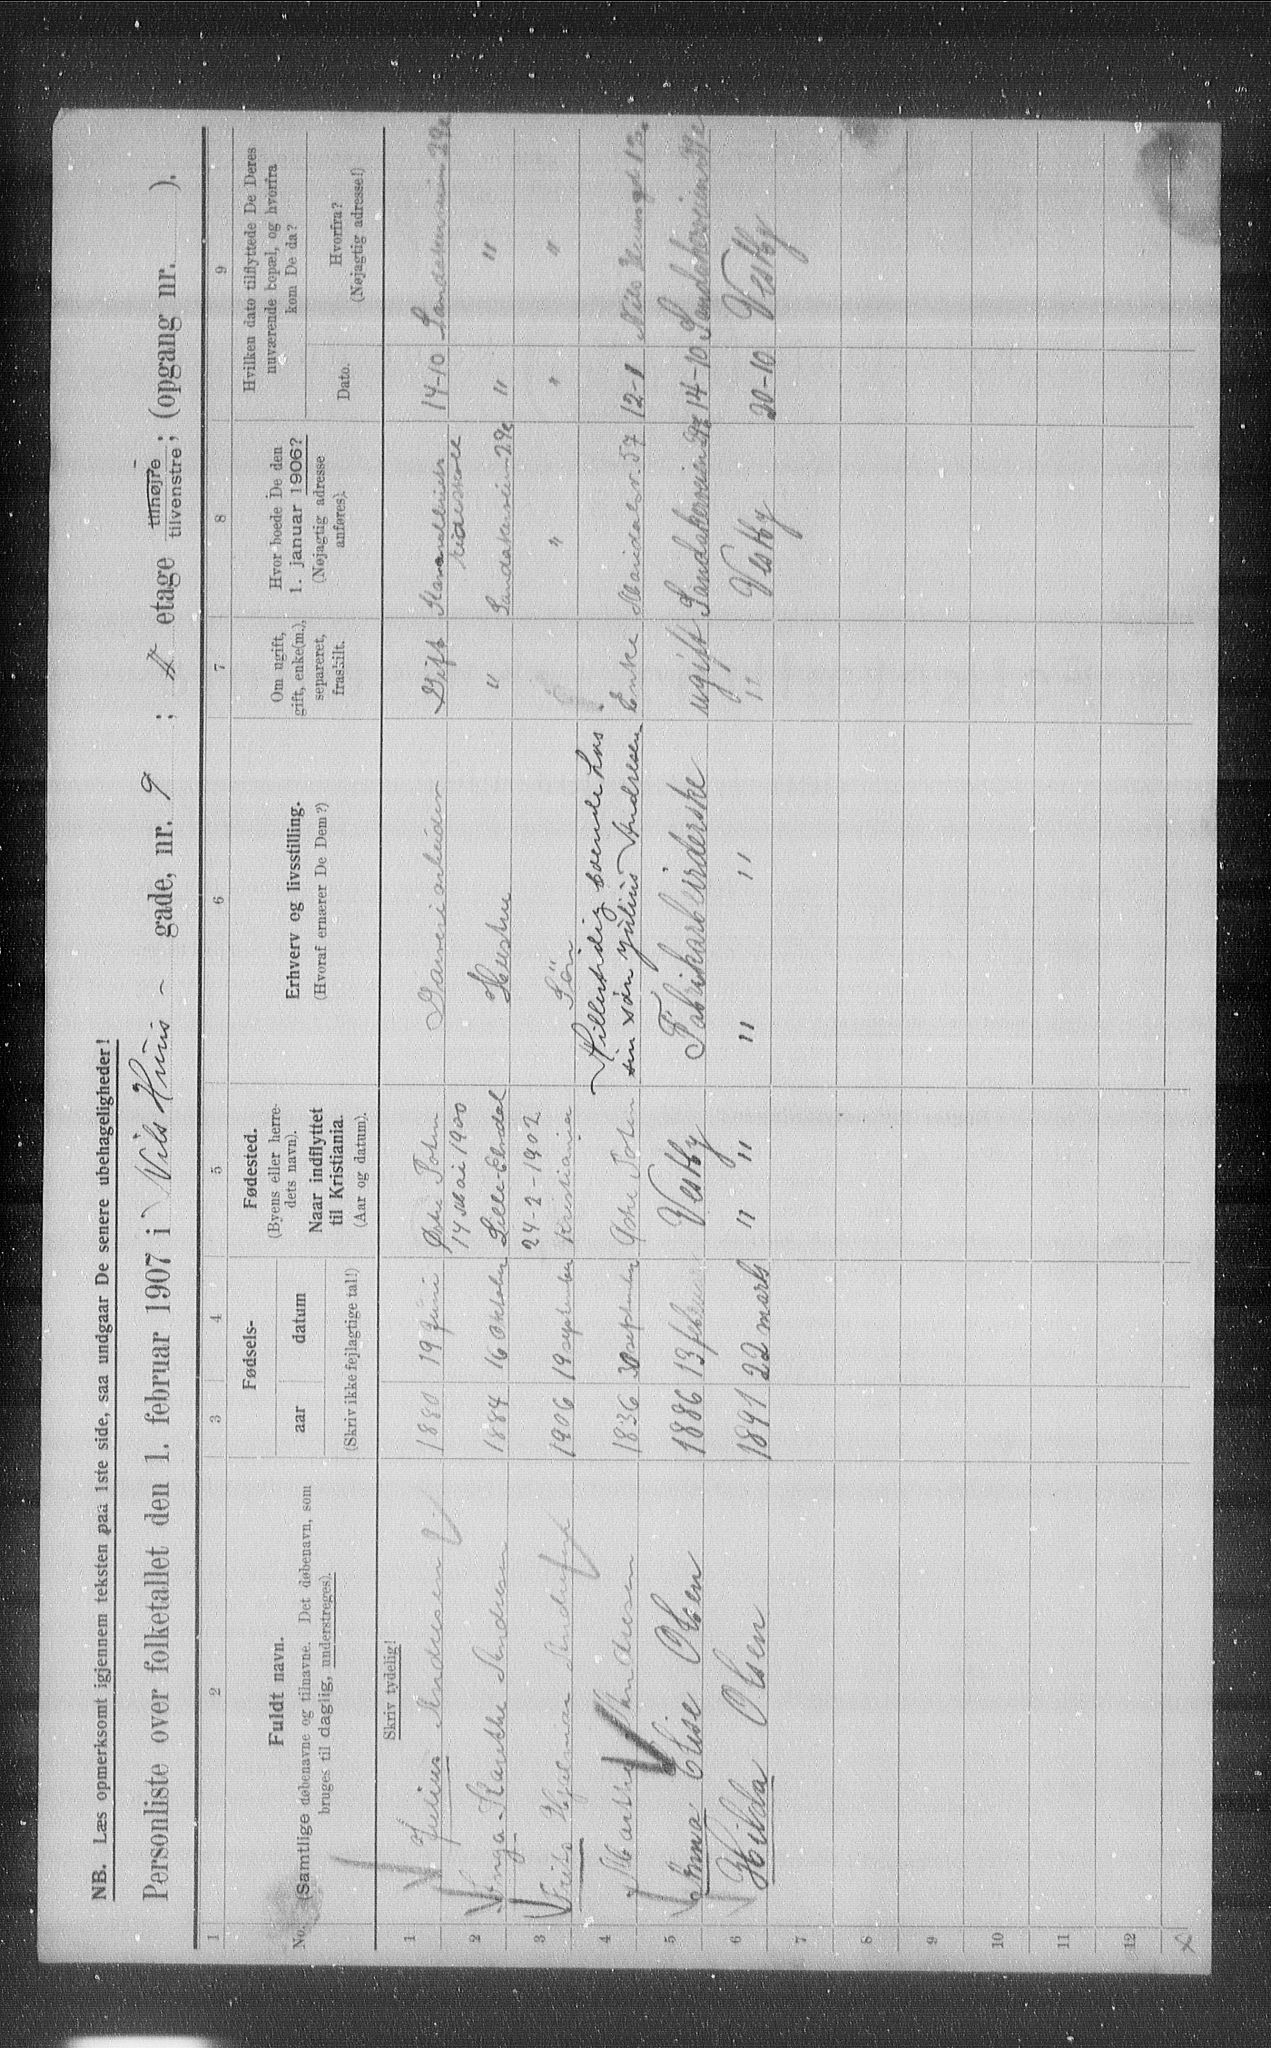 NB. Læs opmerksomt igjennem teksten paa 1ste side, saa undgaar De senere ubehageligheder!
Personliste over folketallet den 1. februar 1907 i Nils Huus - gade, nr. 9 ; etage tilhøjre tilvenstre; (opgang nr. ).
1 2 3 4 5 6 7 8 9
No.
Fuldt navn.
(Samtlige døbenavne og tilnavne. Det døbenavn, som
bruges til daglig, understreges).
Fødsels-
aar datum
(Skriv ikke fejlagtige tal!)
Fødested.
(Byens eller herre-
dets navn).
Naar indflyttet
til Kristiania.
(Aar og datum).
Erhverv og livsstilling.
(Hvoraf ernærer De Dem?)
Om ugift,
gift, enke(m.),
separeret,
fraskilt.
Hvor boede De den
1. januar 1906?
(Nøjagtig adresse
anføres).
Hvilken dato tilflyttede De Deres
nuværende bopæl, og hvorfra
kom De da?
Dato.
Hvorfra?
(Nøjagtig adresse!)
Skriv tydelig!
1 Julius Andresen 1880 19 Juni Østre Toten Garveriarbeider Gift 14-10 Sandakerveien 29e
14 Mai 1900
2 Inga Marthe Andresen 1884 16 Oktober Lille-Elvdal Hustru " Sandakerveien 29e " "
24-2-1902
3 Hjalmar 1906 19 september Kristiania Søn " " "
4 Marthe Andresen 1836 30 september Østre Toten Midlertidig boende hos Enke Maridalsv. 57 12-1
sin søn Julius Andresen
5 Anna Elise Olsen 1886 13 februar Vestby Fabrikarbeiderske ugift Sandakerveien 29e 14-10 Sandakerveien 29e
6 Hilda Olsen 1891 22 marts " " " " " Vestby 20-10 Vestby
7
8
9
10
11
12